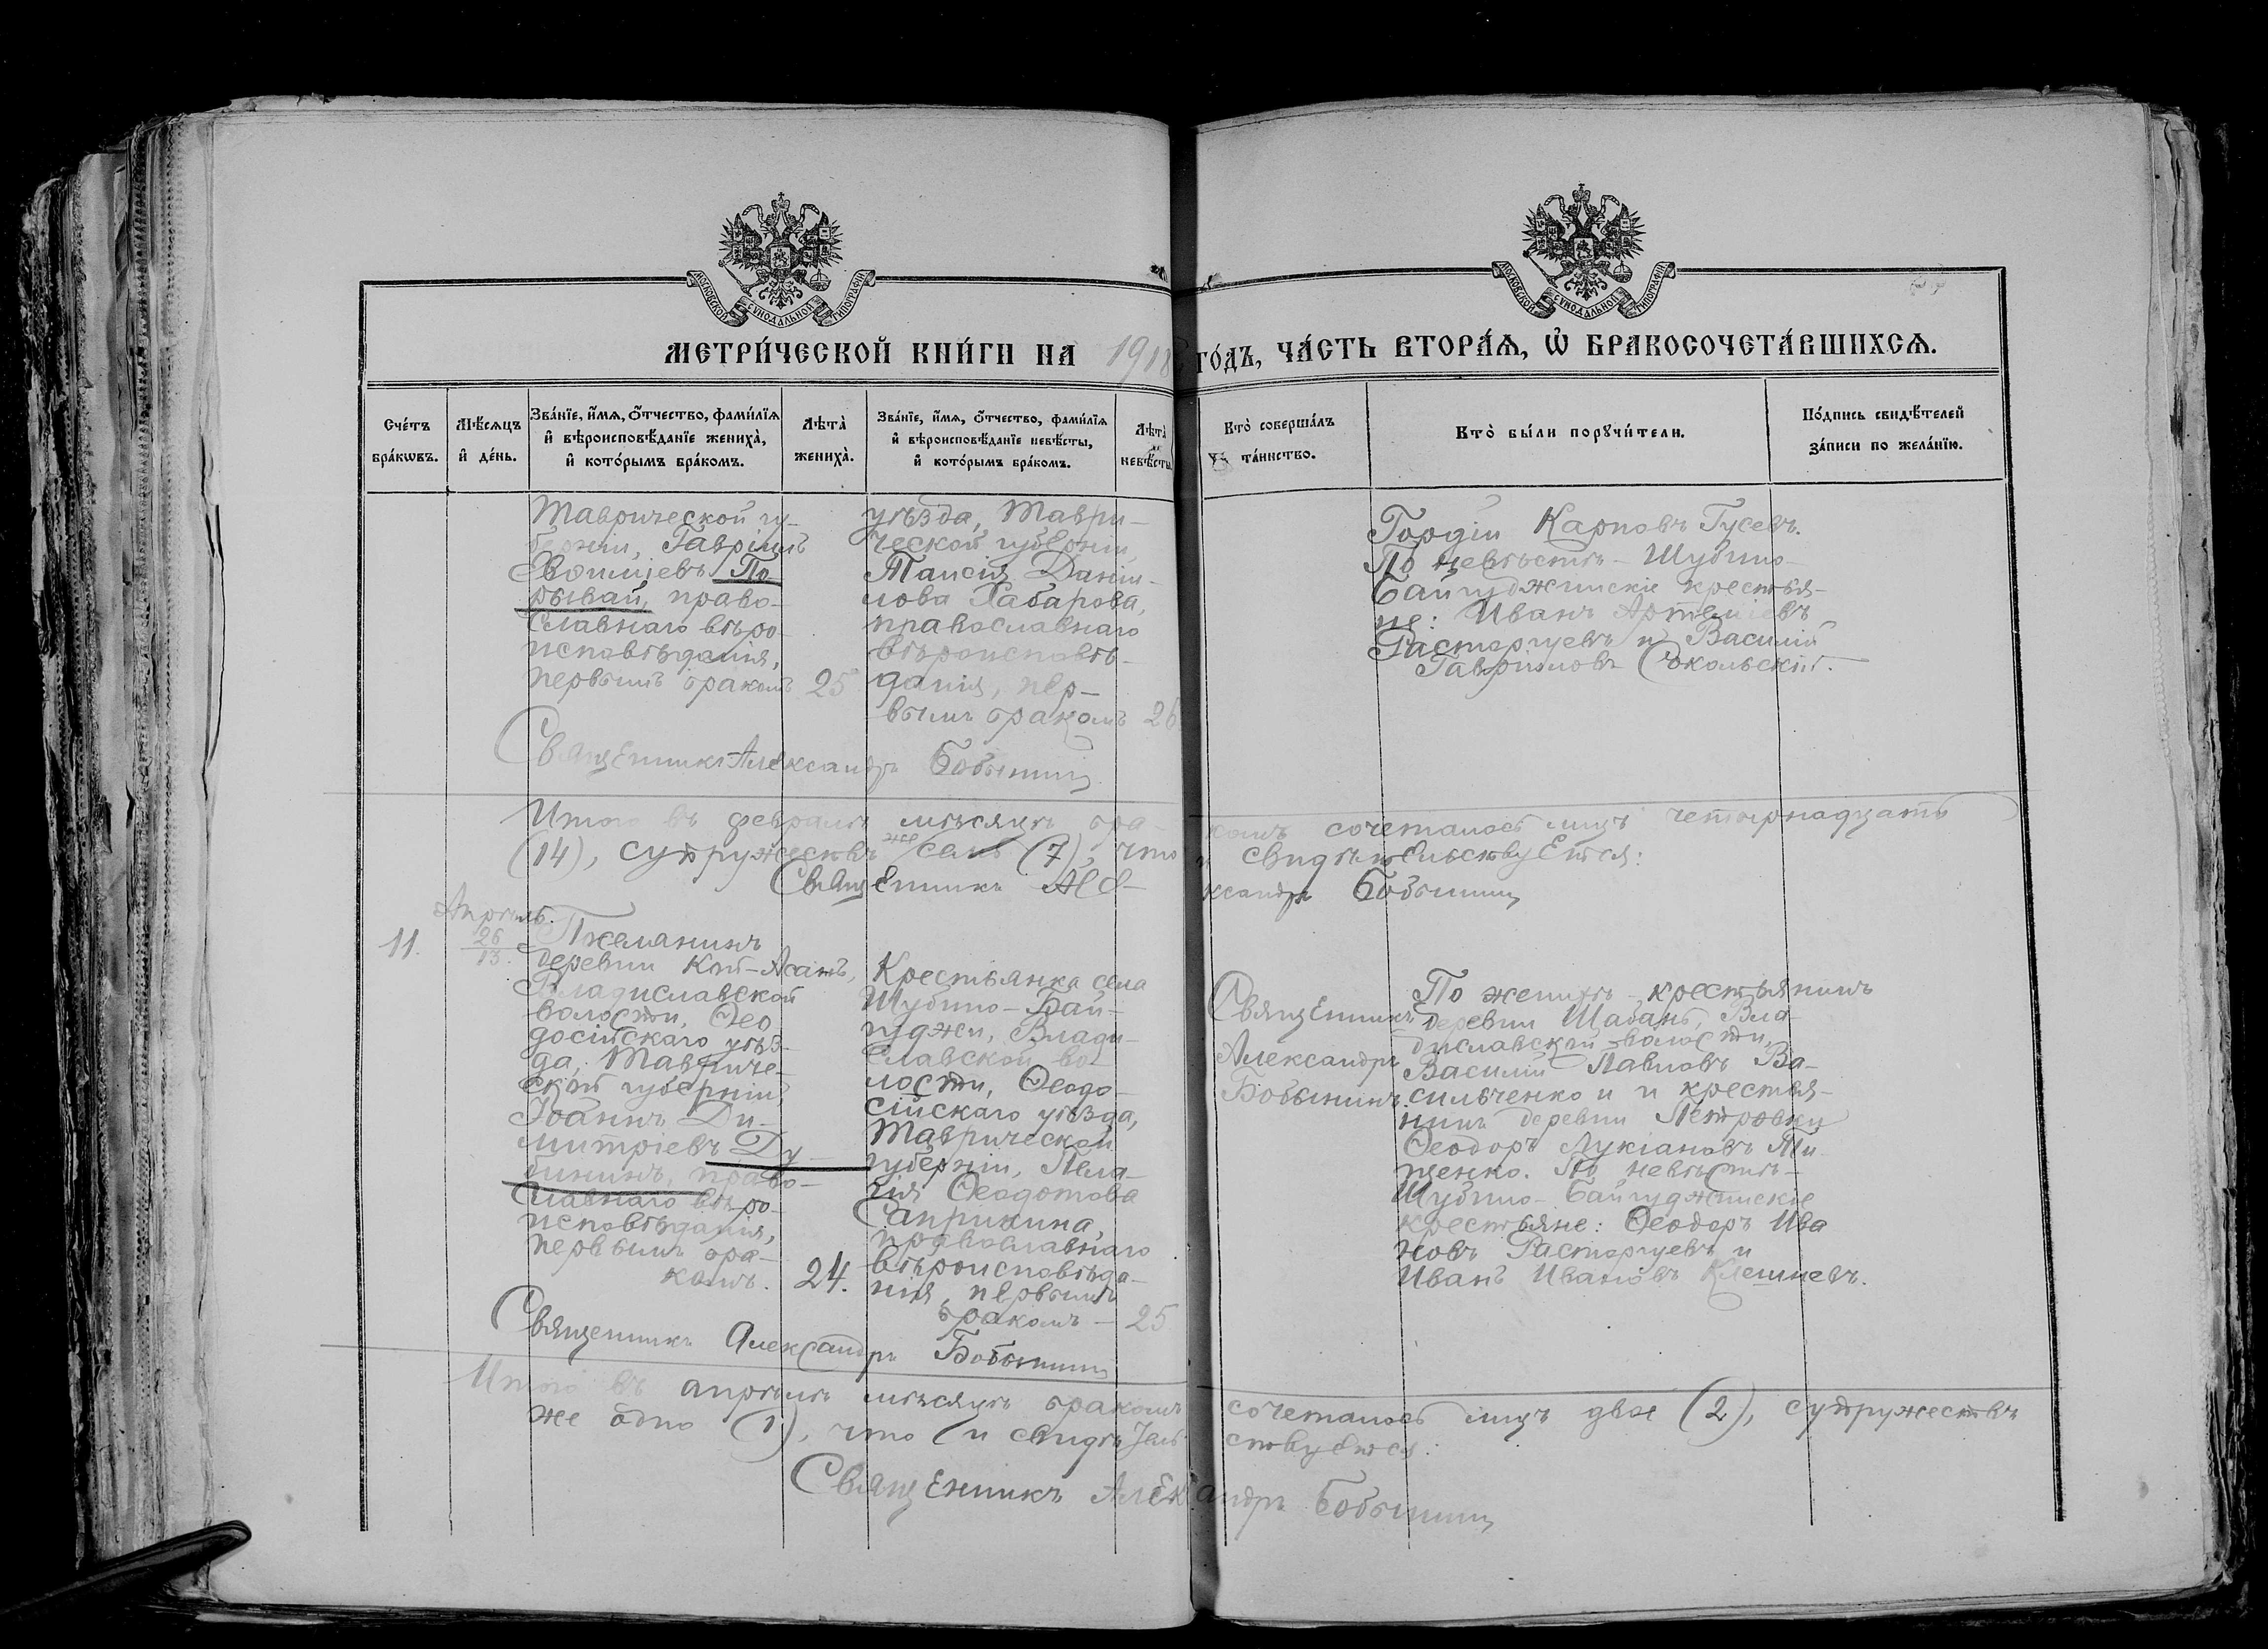 МОСКОВСКОЙ СѴНОДАЛЬНОЙ ТИПОГРАФІИ
МОСКОВСКОЙ СѴНОДАЛЬНОЙ ТИПОГРАФІИ
МЕТРИ́ЧЕСКОЙ КНИ́ГИ НА 1918 ГО́ДЪ, ЧА́СТЬ ВТОРА́Ѧ, Ѡ҆ БРАКОСОЧЕТА́ВШИХСѦ.
Сче́тъ
бра́кѡвъ.
Мѣ́сѧцъ
и҆ де́нь.
Зва́нїе, и҆́мѧ, ѻ҆́тчество, фами́лїѧ
и҆ вѣроисповѣ́данїе жениха̀,
и҆ кото́рымъ бра́комъ.
Лѣта̀
жениха̀.
Зва́нїе, и҆́мѧ, ѻ҆́тчество, фами́лїѧ
и҆ вѣроисповѣ́данїе невѣ́сты,
и҆ кото́рымъ бра́комъ.
Лѣта̀
невѣ́сты
Кто̀ соверша́лъ
та́инство.
Кто̀ бы́ли порꙋчи́тели.
По́дпись свидѣ́телей
за́писи по жела́нїю.
Таврической гу-
берніи, Гавріилъ
По-
рывай, право-
славнаго вѣро-
исповѣданія,
первымъ бракомъ
25
уѣзда, Таври-
ческой губерніи,
Таисія Даніи-
лова Габарова,
православнаго
вѣроисповѣ-
данія, пер-
вымъ бракомъ
26
Гордій Карповъ Гусевъ.
По невѣстѣ - Шубино-
Байгуджинскіе крестья-
не: Иванъ Артеміевъ
Расторгуевъ и Василій
Гавріиловъ Сокольскій.
Священникъ Александръ Бобынинъ
Итого въ февралѣ мѣсяцѣ бра-
комъ сочеталось лицъ четырнадцать
(14), супружествъ же семь (7), что
и свидѣтельствуется:
Священникъ Але-
ксандръ Бобынинъ
11.
Апрѣль.
26
13.
деревни Кой-Асанъ,
Владиславской
волости, Ѳео-
досійскаго уѣз-
да, Тавриче-
ской губерніи,
Іоаннъ Ди-
митріевъ Ду-
бининъ, право-
славнаго вѣро-
исповѣданія,
первымъ бра-
комъ.
24.
Крестьянка села
Шубино-Бай-
гуджи, Влади-
славской во-
лости, Ѳеодо-
сійскаго уѣзда,
Таврической
губерніи, Пела-
гія Ѳеодотова
Саприкина,
православнаго
вѣроисповѣда-
нія, первымъ
бракомъ -
25
Священникъ
Александръ
Бобынинъ.
По женихѣ - крестьянинъ
деревни Шабань, Вла-
диславской волости,
Василій Павловъ Ва-
сильченко и и крестья-
нинъ деревни Петровки
Ѳеодоръ Лукіановъ Ти-
щенко. По невѣстѣ -
Шубино-Байгуджинскіе
крестьяне: Ѳеодоръ Ива
новъ Расторгуевъ и
Иванъ Ивановъ Клешневъ.
Священникъ Александръ Бобынинъ
Итого въ апрѣлѣ мѣсяцѣ бракомъ
сочеталось лицъ двое (2), супружествъ
же одно (1), что и свидѣтель-
ствуется:
Священникъ Александръ Бобынинъ